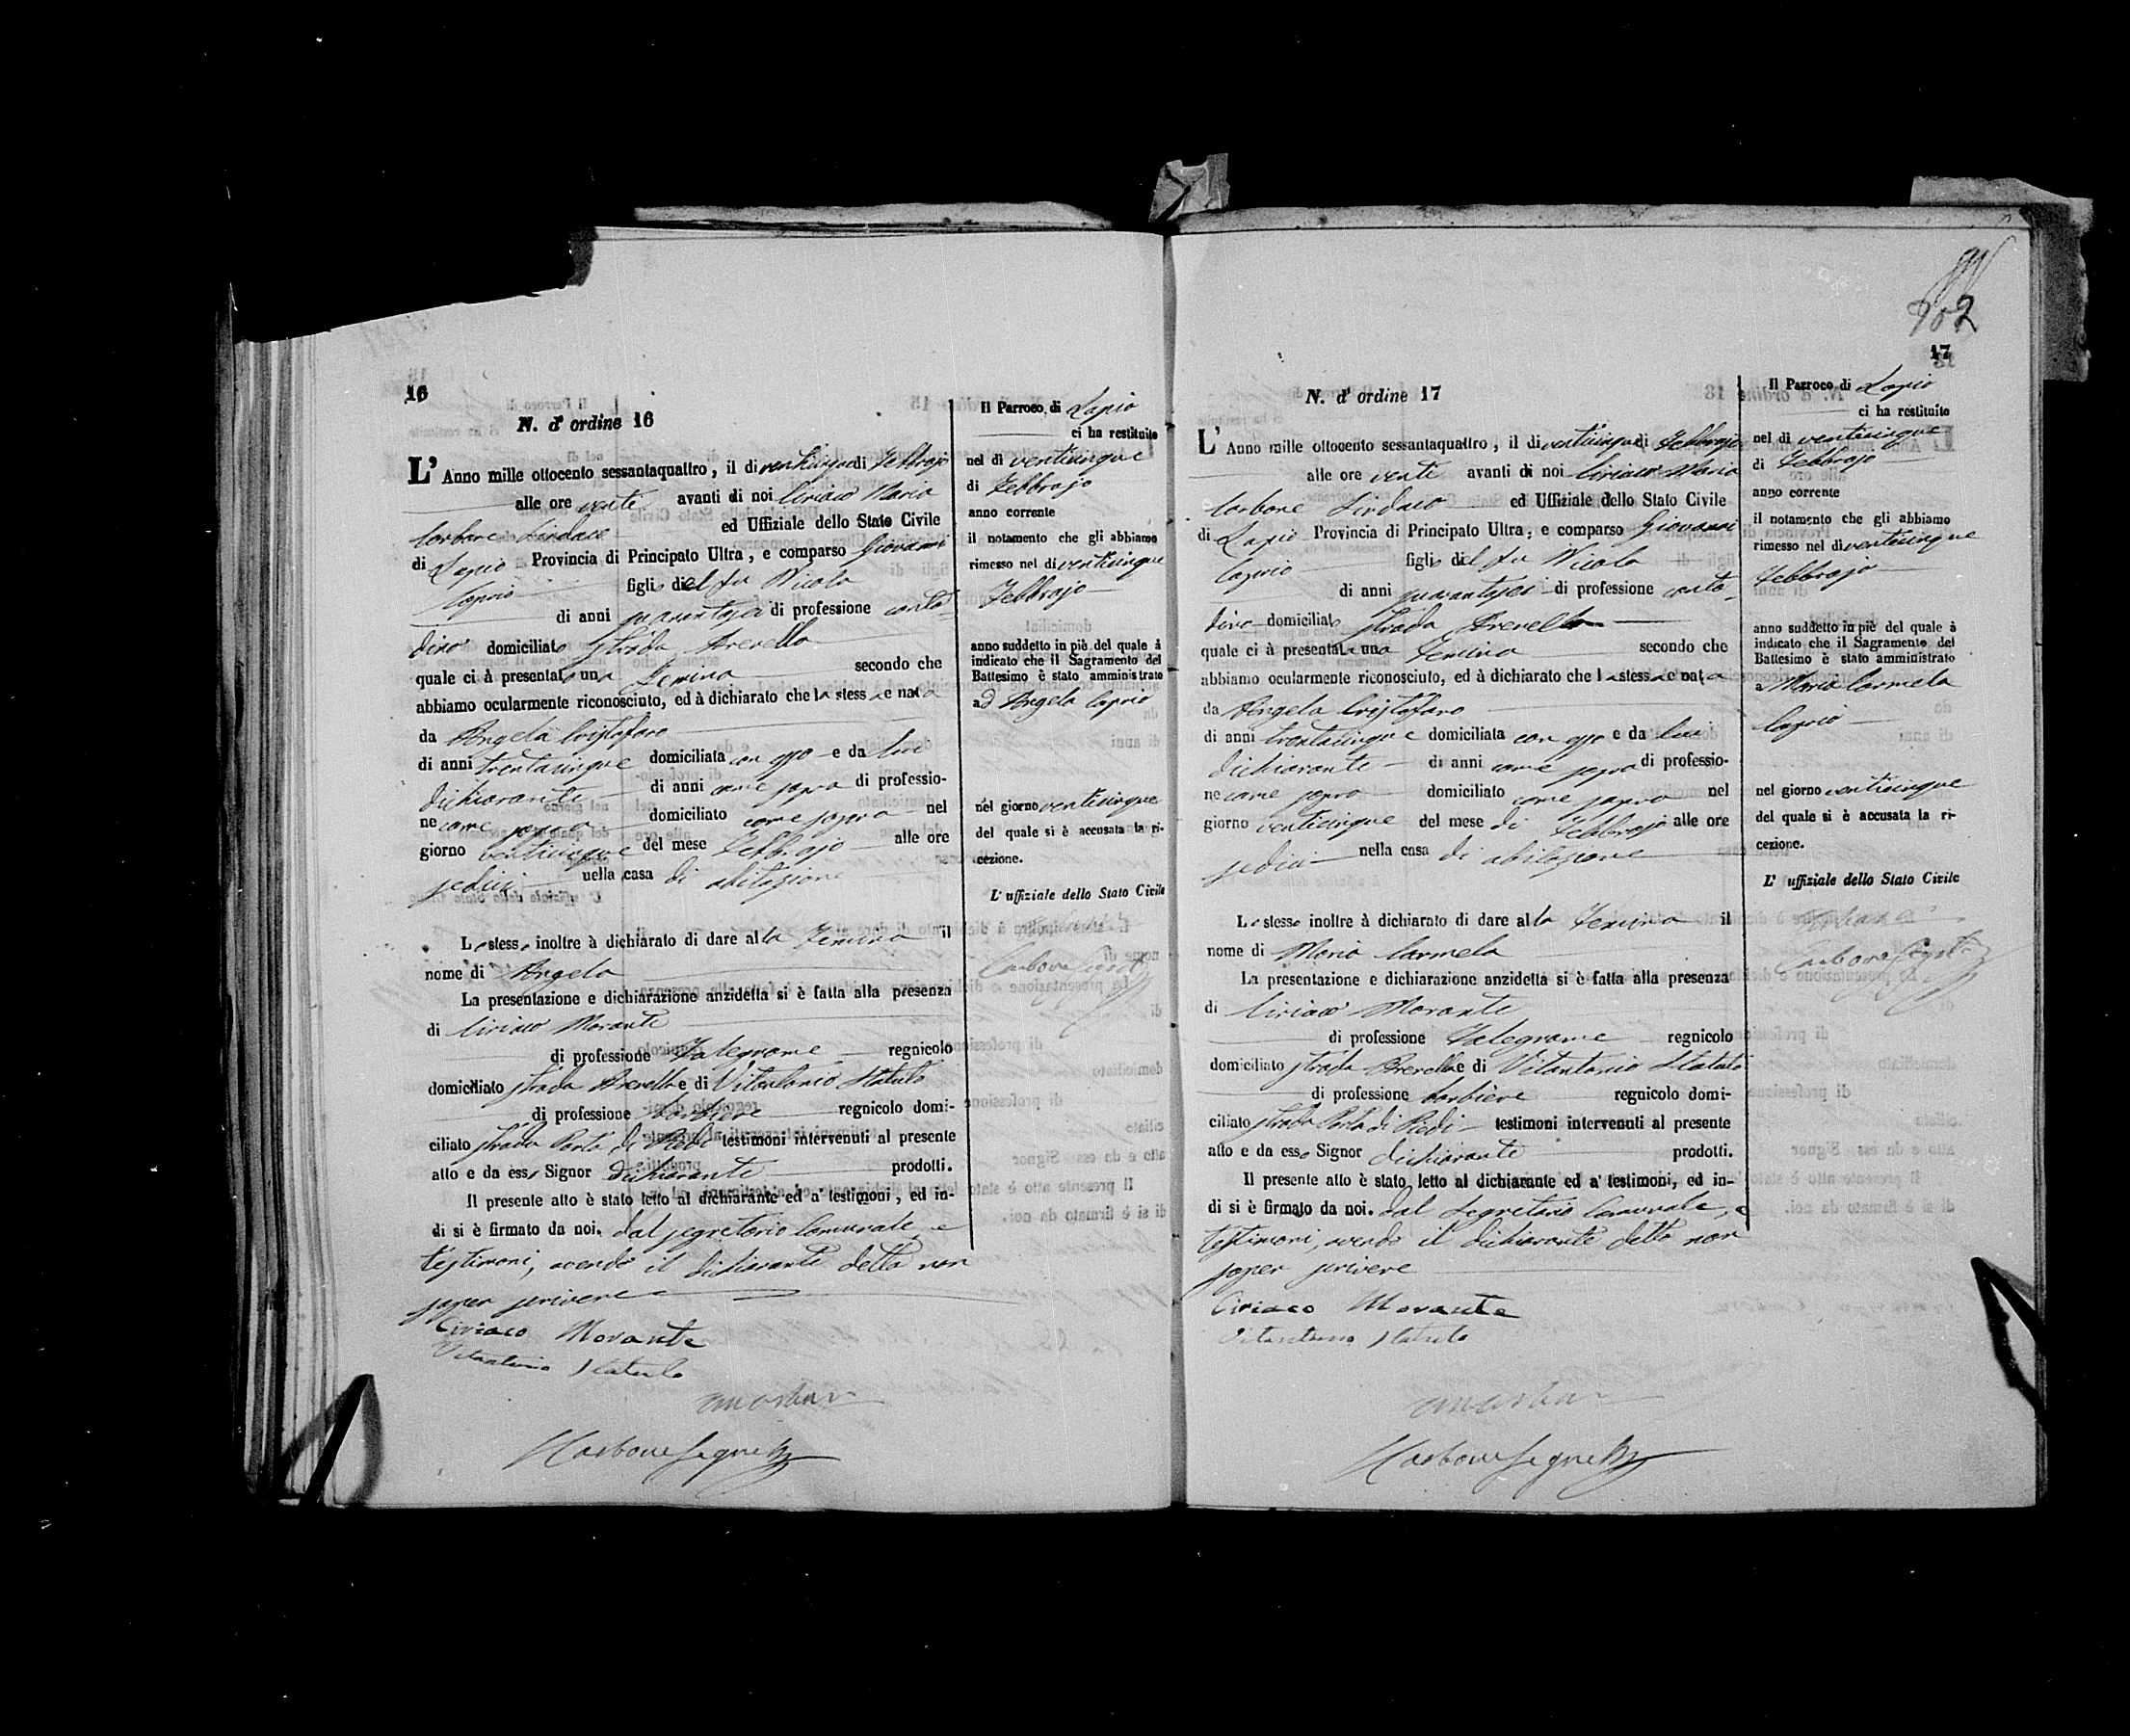 16
N. d' ordine 16
L' Anno mille ottocento sessantaquattro, il di venticinque di Febbrajo
alle ore venti avanti di noi Ciriaco Maria
Carbone Sindaco ed Uffiziale dello Stato Civile
di Lapio Provincia di Principato Ultra, e comparso Giovanni
Caprio figlio del fu Nicola
di anni quarantasei di professione conta
dino domiciliato strada Brevella
quale ci à presentato una Femina secondo che
abbiamo ocularmente riconosciuto, ed à dichiarato che la stessa e nata
da Angela Cristofaro
di anni trentacinque domiciliata con esso e da lui
dichiarante di anni come sopra di professio-
ne come sopra domiciliato come sopra nel
giorno venticinque del mese Febbrajo alle ore
sedici nella casa di abitazione
Lo stesso inoltre à dichiarato di dare alla Femina il
nome di Angela
La presentazione e dichiarazione anzidetta si è fatta alla presenza
di Ciriaco Morante
di professione Falegname regnicolo
domiciliato strada Brevella e di Vitantonio Statuto
di professione barbiere regnicolo domi-
ciliato strada Porta di Piedi testimoni intervenuti al presente
atto e da esso Signor dichiarante prodotti.
Il presente atto è stato letto al dichiarante ed a' testimoni, ed in-
di si è firmato da noi. dal segretario Comunale, e
testimoni, avendo il dichiarante detto non
saper scrivere
Ciriaco Morante
Vitantonio Statuto
Carbone
Il Parroco di Lapio
ci ha restituito
nel di venticinque
di Febbrajo
anno corrente
il notamento che gli abbiamo
rimesso nel di venticinque
Febbrajo
anno suddetto in piè del quale à
indicato che il Sagramento del
Battesimo è stato amministrato
ad Angela Caprio
nel giorno venticinque
del quale si è accusata la ri-
cezione.
L' uffiziale dello Stato Civile
Carbone
17
N. d' ordine 17
L' Anno mille ottocento sessantaquattro, il di venticinque di Febbrajo
alle ore venti avanti di noi Ciriaco Maria
Carbone Sindaco ed Uffiziale dello Stato Civile
di Lapio Provincia di Principato Ultra, e comparso Giovanni
Caprio figlio del fu Nicola
di anni quarantasei di professione conta-
dino domiciliato strada Brevella
quale ci à presentata una Femina secondo che
abbiamo ocularmente riconosciuto, ed à dichiarato che la stessa e nata
da Angela Cristofaro
di anni trentacinque domiciliata con esso e da lui
dichiarante di anni come sopra di professio-
ne come sopra domiciliato come sopra nel
giorno venticinque del mese di Febbrajo alle ore
sedici nella casa di abitazione
Lo stesso inoltre à dichiarato di dare alla Femina il
nome di Maria Carmela
La presentazione e dichiarazione anzidetta si è fatta alla presenza
di Ciriaco Morante
di professione Falegname regnicolo
domiciliato strada Brevella e di Vitantonio Statuto
di professione barbiere regnicolo domi-
ciliato strada Porta di Piedi testimoni intervenuti al presente
atto e da esso Signor dichiarante prodotti.
Il presente atto è stato letto al dichiarante ed a' testimoni, ed in-
di si è firmato da noi. dal Segretario Comunale, e
testimoni, avendo il dichiarante detto non
saper scrivere
Ciriaco Morante
Vitantonio Statuto
Carbone
Il Parroco di Lapio
ci ha restituito
nel di venticinque
di Febbrajo
anno corrente
il notamento che gli abbiamo
rimesso nel di venticinque
Febbrajo
anno suddetto in piè del quale à
indicato che il Sagramento del
Battesimo è stato amministrato
a Maria Carmela
Caprio
nel giorno venticinque
del quale si è accusata la ri-
cezione.
L' uffiziale dello Stato Civile
Carbone